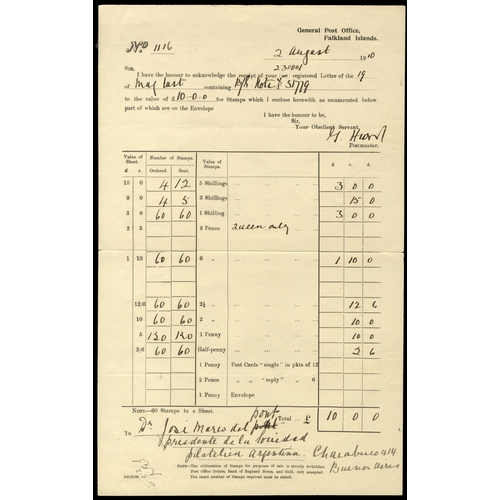 General Post Office,
Falkland Islands.
No 1116
2 August 1910
SIR,
I have the honour to acknowledge the receipt of your registered Letter of the 19
of May last containing Note
to the value of £10-0-0 for Stamps which I enclose herewith as enumerated below
part of which are on the Envelope
I have the honour to be,
Sir,
Your Obedient Servant,
Postmaster.
Value of Sheet. Number of Stamps. Value of Stamps. Value of Stamps Sent.
£ s. Ordered. Sent. £ s. d.
15 0 4 12 5 Shillings ... ... ... 3 0 0
9 0 4 5 3 Shillings ... ... ... 15 0
3 0 60 60 1 Shilling ... ... ... 3 0 0
2 5 9 Pence Queen only
1 10 60 60 6 „ ... ... ... 1 10 0
12/6 60 60 2½ „ ... ... ... 12 6
10 60 60 2 „ ... ... ... 10 0
5 120 120 1 Penny ... ... ... 10 0
2/6 60 60 Half-penny ... ... ... 2 6
1 Penny Post Cards "single" in pkts of 12
2 Pence „ „ "reply" „ 6
1 Penny Envelope
NOTE—60 Stamps to a Sheet. Total ... £ 10 0 0
To Dr José Marco del Pont
presidente de la Sociedad
filatelica Argentina. Chacabuco 414
Buenos Aires
NOTE.—The obliteration of Stamps for purposes of sale is strictly forbidden.
Post Office Orders, Bank of England Notes, and Gold, only accepted.
The exact number of Stamps required must be stated.